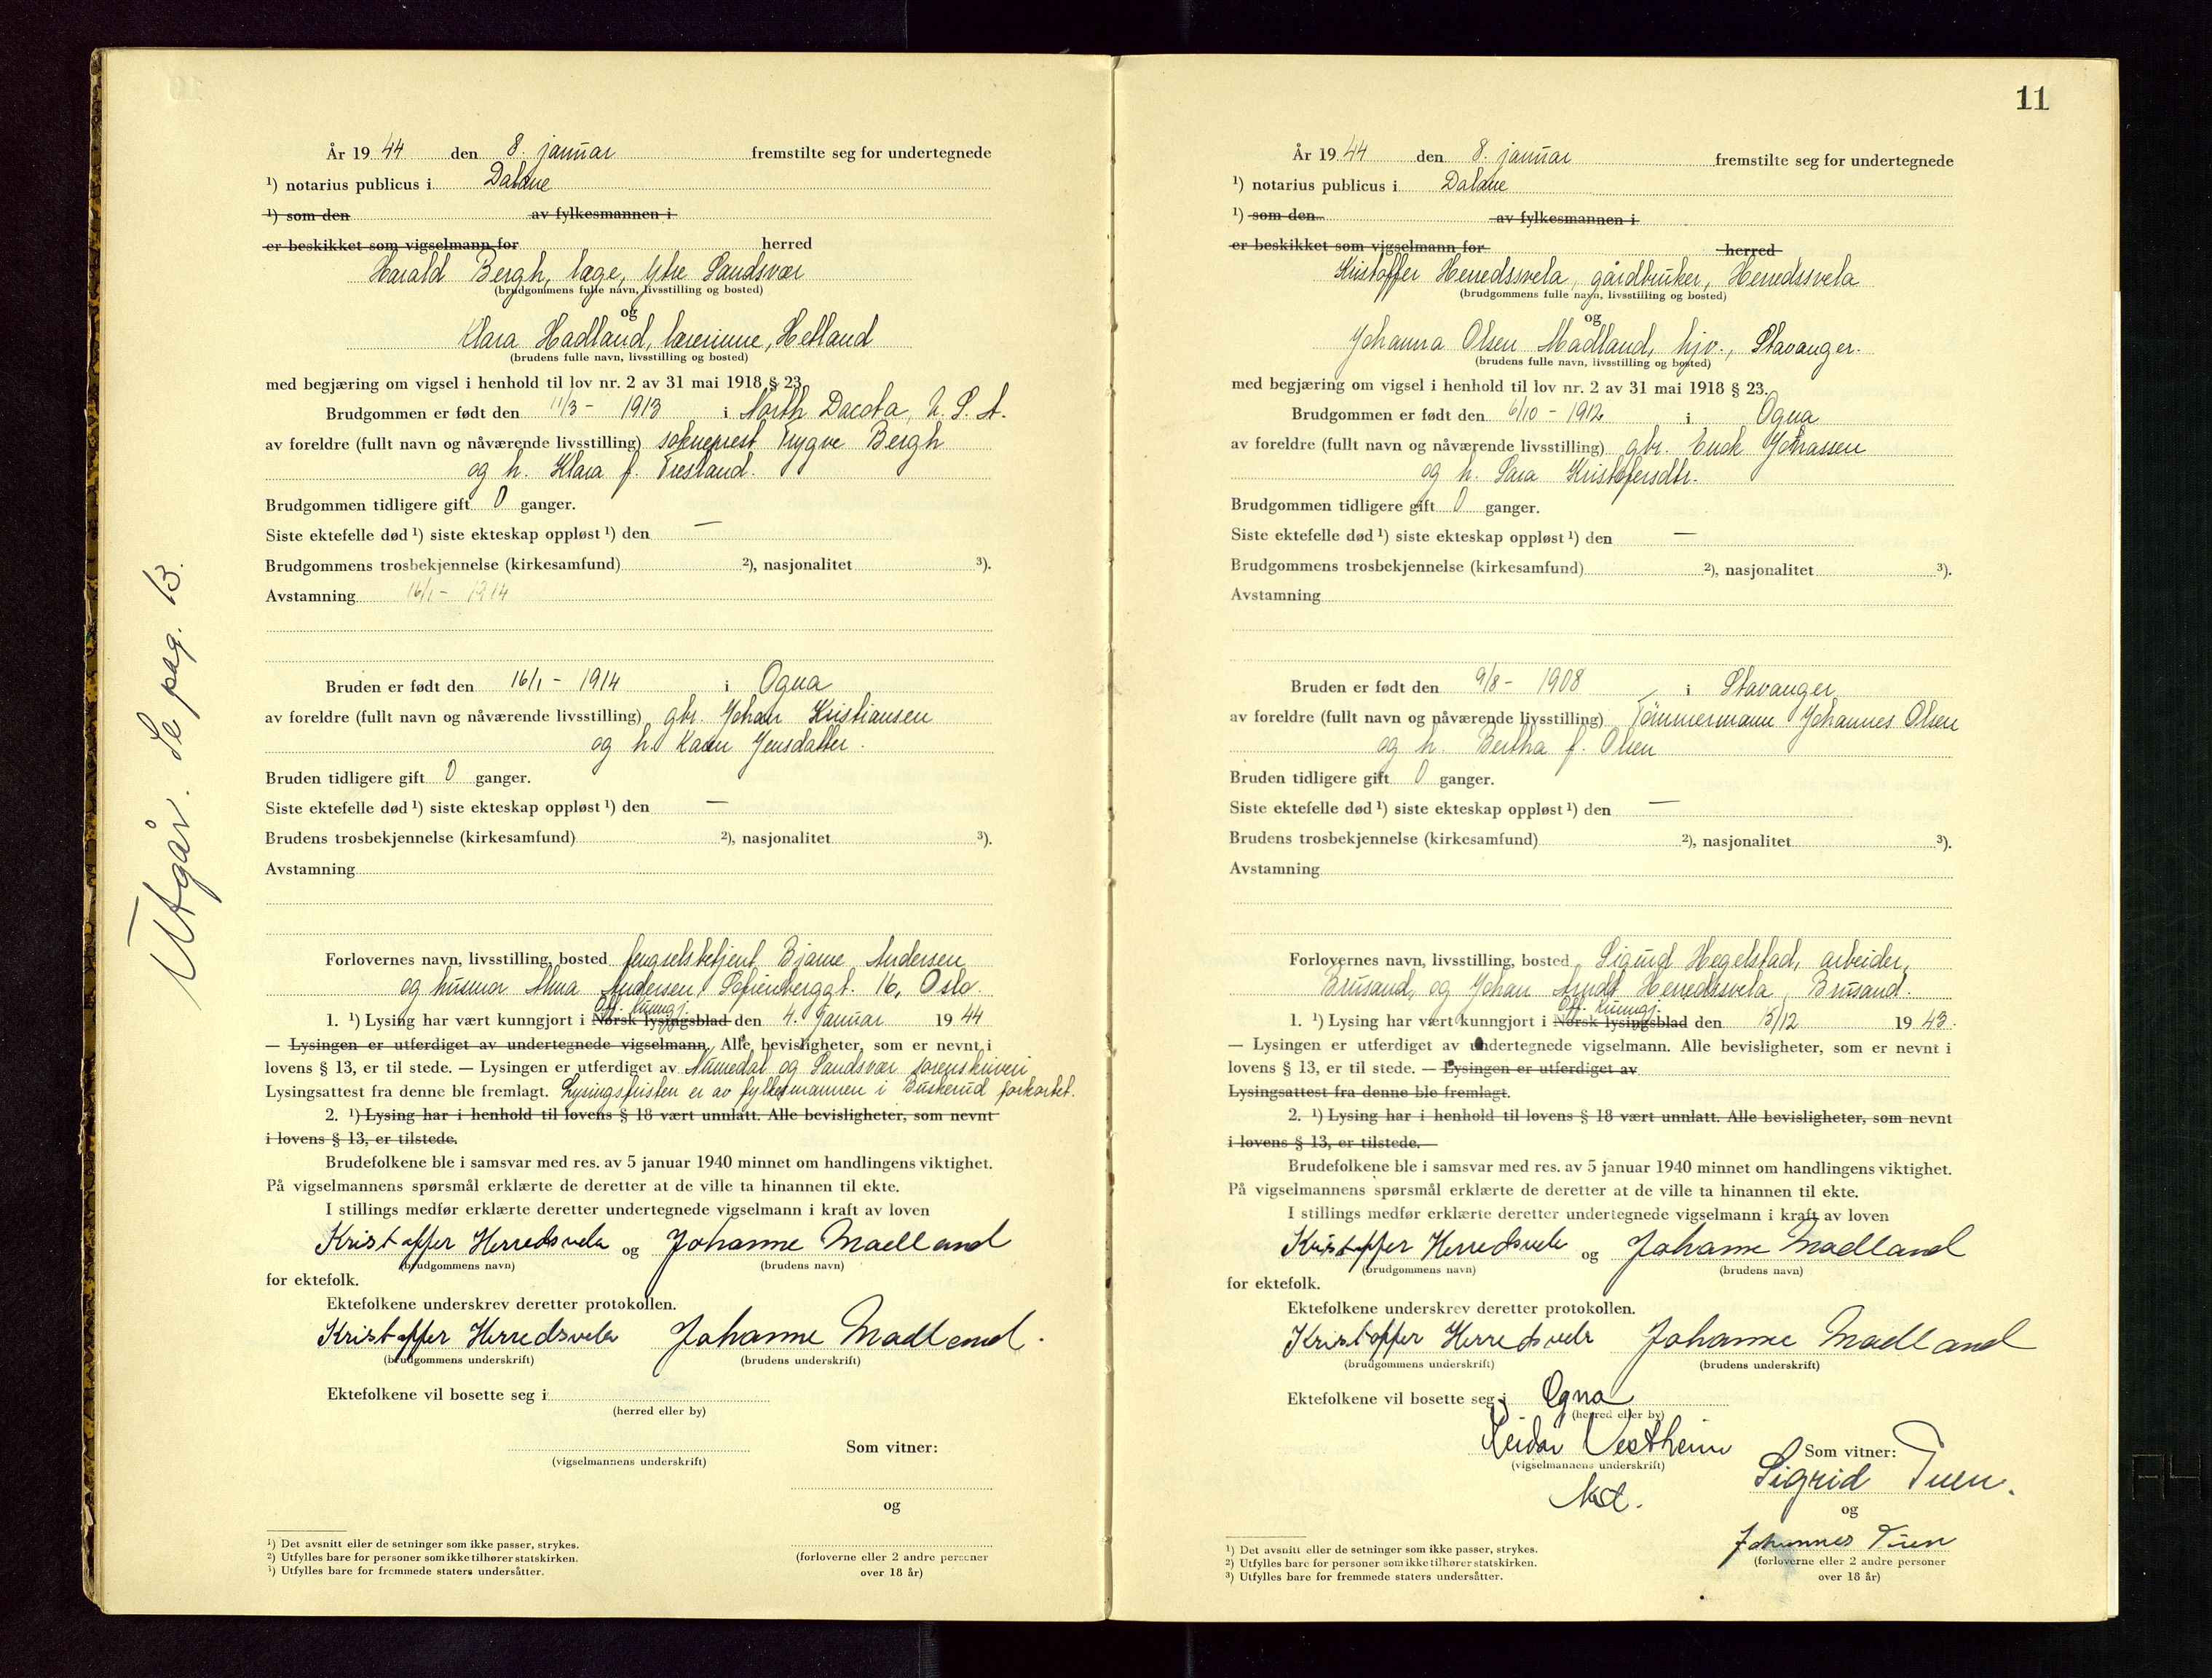 År 19 44 den 8. januar fremstilte seg for undertegnede
¹) notarius publicus i Dalane
¹) som den av fylkesmannen i
er beskikket som vigselmann for herred
Harald Bergh, læge, Ytre Sandsvær
(brudgommens fulle navn, livsstilling og bosted)
og
Klara Hadland, lærerinne, Hetland
(brudens fulle navn, livsstilling og bosted)
med begjæring om vigsel i henhold til lov nr. 2 av 31 mai 1918 § 23.
Brudgommen er født den 11/3 - 1913 i North Dacota, U. S. A.
av foreldre (fullt navn og nåværende livsstilling) sokneprest Trygve Bergh
og h. Klara f.
Brudgommen tidligere gift 0 ganger.
Siste ektefelle død ¹) siste ekteskap oppløst ¹) den —
Brudgommens trosbekjennelse (kirkesamfund) ²), nasjonalitet ³).
Avstamning 16/1 - 1914
Bruden er født den 16/1 - 1914 i Ogna
av foreldre (fullt navn og nåværende livsstilling) gbr. Johan Kristiansen
og h. Karen Jensdatter.
Bruden tidligere gift 0 ganger.
Siste ektefelle død ¹) siste ekteskap oppløst ¹) den —
Brudens trosbekjennelse (kirkesamfund) ²), nasjonalitet ³).
Avstamning
Forlovernes navn, livsstilling, bosted fengselsbetjent Bjarne Andersen
og husmor Alma Andersen, Sofienberggt. 16, Oslo.
Off. kunngj.
1. ¹) Lysing har vært kunngjort i Norsk lysingsblad den 4. januar 19 44
— Lysingen er utferdiget av undertegnede vigselmann. Alle bevisligheter, som er nevnt i
lovens § 13, er til stede. — Lysingen er utferdiget av Numedal og Sandsvær sorenskriveri
Lysingsattest fra denne ble fremlagt. Lysingsfristen er av fylkesmannen i Buskerud forkortet.
2. ¹) Lysing har i henhold til lovens § 18 vært unnlatt. Alle bevisligheter, som nevnt
i lovens § 13, er tilstede.
Brudefolkene ble i samsvar med res. av 5 januar 1940 minnet om handlingens viktighet.
På vigselmannens spørsmål erklærte de deretter at de ville ta hinannen til ekte.
I stillings medfør erklærte deretter undertegnede vigselmann i kraft av loven
Kristoffer Herredsvela og Johanne Madland
(brudgommens navn) (brudens navn)
for ektefolk.
Ektefolkene underskrev deretter protokollen.
Kristoffer Herredsvela Johanne Madland.
(brudgommens underskrift) (brudens underskrift)
Ektefolkene vil bosette seg i
(herred eller by)
Som vitner:
(vigselmannens underskrift)
og
¹) Det avsnitt eller de setninger som ikke passer, strykes.
²) Utfylles bare for personer som ikke tilhører statskirken.
³) Utfylles bare for fremmede staters undersåtter.
(forloverne eller 2 andre personer
over 18 år)
Utgår. Se pag. 13.
11
År 19 44 den 8. januar fremstilte seg for undertegnede
¹) notarius publicus i Dalane
¹) som den av fylkesmannen i
er beskikket som vigselmann for herred
Kristoffer Herredssvela, gårdbruker, Herredssvela
(brudgommens fulle navn, livsstilling og bosted)
og
Johanna Olsen Madland, hjv., Stavanger.
(brudens fulle navn, livsstilling og bosted)
med begjæring om vigsel i henhold til lov nr. 2 av 31 mai 1918 § 23.
Brudgommen er født den 6/10 - 1912 i Ogna
av foreldre (fullt navn og nåværende livsstilling) gbr. Enok Johnassen
og h. Sara Kristofersdtr.
Brudgommen tidligere gift 0 ganger.
Siste ektefelle død ¹) siste ekteskap oppløst ¹) den —
Brudgommens trosbekjennelse (kirkesamfund) ²), nasjonalitet ³).
Avstamning
Bruden er født den 9/8 - 1908 i Stavanger
av foreldre (fullt navn og nåværende livsstilling) Tømmermann Johannes Olsen
og h. Bertha f. Olsen
Bruden tidligere gift 0 ganger.
Siste ektefelle død ¹) siste ekteskap oppløst ¹) den —
Brudens trosbekjennelse (kirkesamfund) ²), nasjonalitet ³).
Avstamning
Forlovernes navn, livsstilling, bosted Sigurd Hegelstad, arbeider,
Brusand, og Johan Arndt Herredssvela, Brusand.
Off. kunngj.
1. ¹) Lysing har vært kunngjort i Norsk lysingsblad den 15/12 19 43.
— Lysingen er utferdiget av undertegnede vigselmann. Alle bevisligheter, som er nevnt i
lovens § 13, er til stede. — Lysingen er utferdiget av
Lysingsattest fra denne ble fremlagt.
2. ¹) Lysing har i henhold til lovens § 18 vært unnlatt. Alle bevisligheter, som nevnt
i lovens § 13, er tilstede.
Brudefolkene ble i samsvar med res. av 5 januar 1940 minnet om handlingens viktighet.
På vigselmannens spørsmål erklærte de deretter at de ville ta hinannen til ekte.
I stillings medfør erklærte deretter undertegnede vigselmann i kraft av loven
Kristoffer Herredsvela og Johanne Madland
(brudgommens navn) (brudens navn)
for ektefolk.
Ektefolkene underskrev deretter protokollen.
Kristoffer Herredsvela Johanne Madland
(brudgommens underskrift) (brudens underskrift)
Ektefolkene vil bosette seg i Ogna
(herred eller by)
Reidar Vestheim Som vitner:
(vigselmannens underskrift) Sigrid Tuen.
og
Johannes Tuen
¹) Det avsnitt eller de setninger som ikke passer, strykes.
²) Utfylles bare for personer som ikke tilhører statskirken.
³) Utfylles bare for fremmede staters undersåtter.
(forloverne eller 2 andre personer
over 18 år)